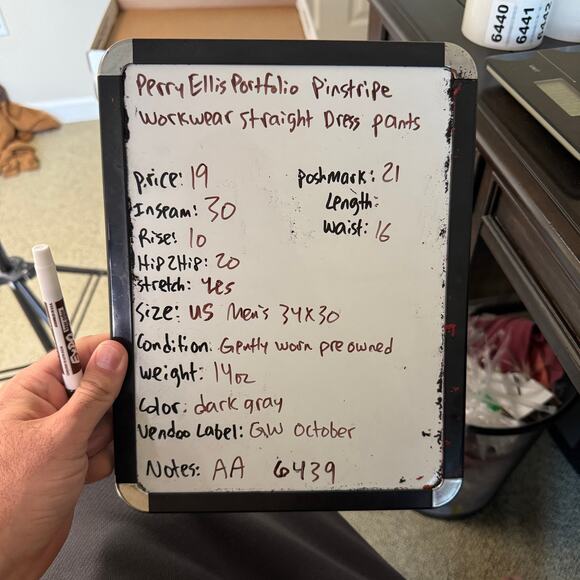 Perry Ellis Portfolio Pinstripe
Workwear straight Dress pants
price: 19
poshmark: 21
Inseam: 30
Length:
Rise: 10
waist: 16
Hip2Hip: 20
stretch: yes
Size: US Men's 34x30
Condition: Gently worn preowned
weight: 14oz
Color: dark gray
Vendoo Label: GW October
Notes: AA 6439
6440
6441